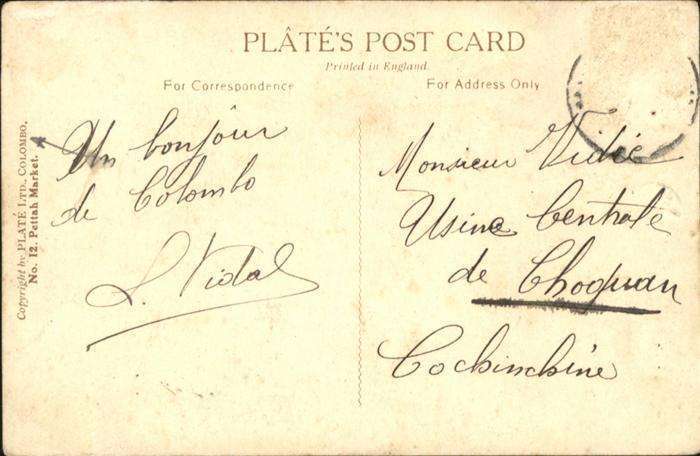 PLÂTÉ'S POST CARD
Printed in England.
For Correspondence
For Address Only
Copyright by PLATÉ LTD., COLOMBO.
No. 12. Pettah Market.
Un bonjour
de Colombo
L. Vidal
Monsieur Vidié
Usine Centrale
de Choquan
Cochinchine